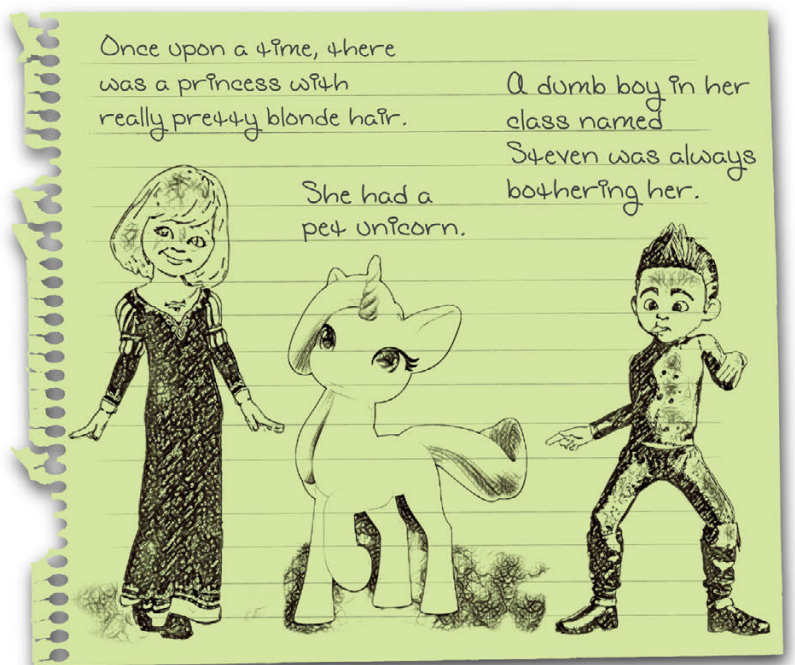 Once upon a time, there
was a princess with
really pretty blonde hair.
She had a
pet unicorn.
A dumb boy in her
class named
Steven was always
bothering her.